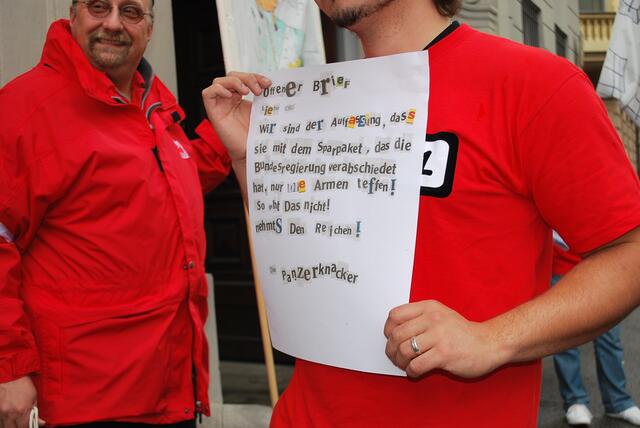 Offener Brief
Liebe
Wir sind der Auffassung, dass
sie mit dem Sparpaket, das die
Bundesregierung verabschiedet
hat, nur die Armen teffen!
So geht Das nicht!
nehmts Den Reichen!
Die Panzerknacker